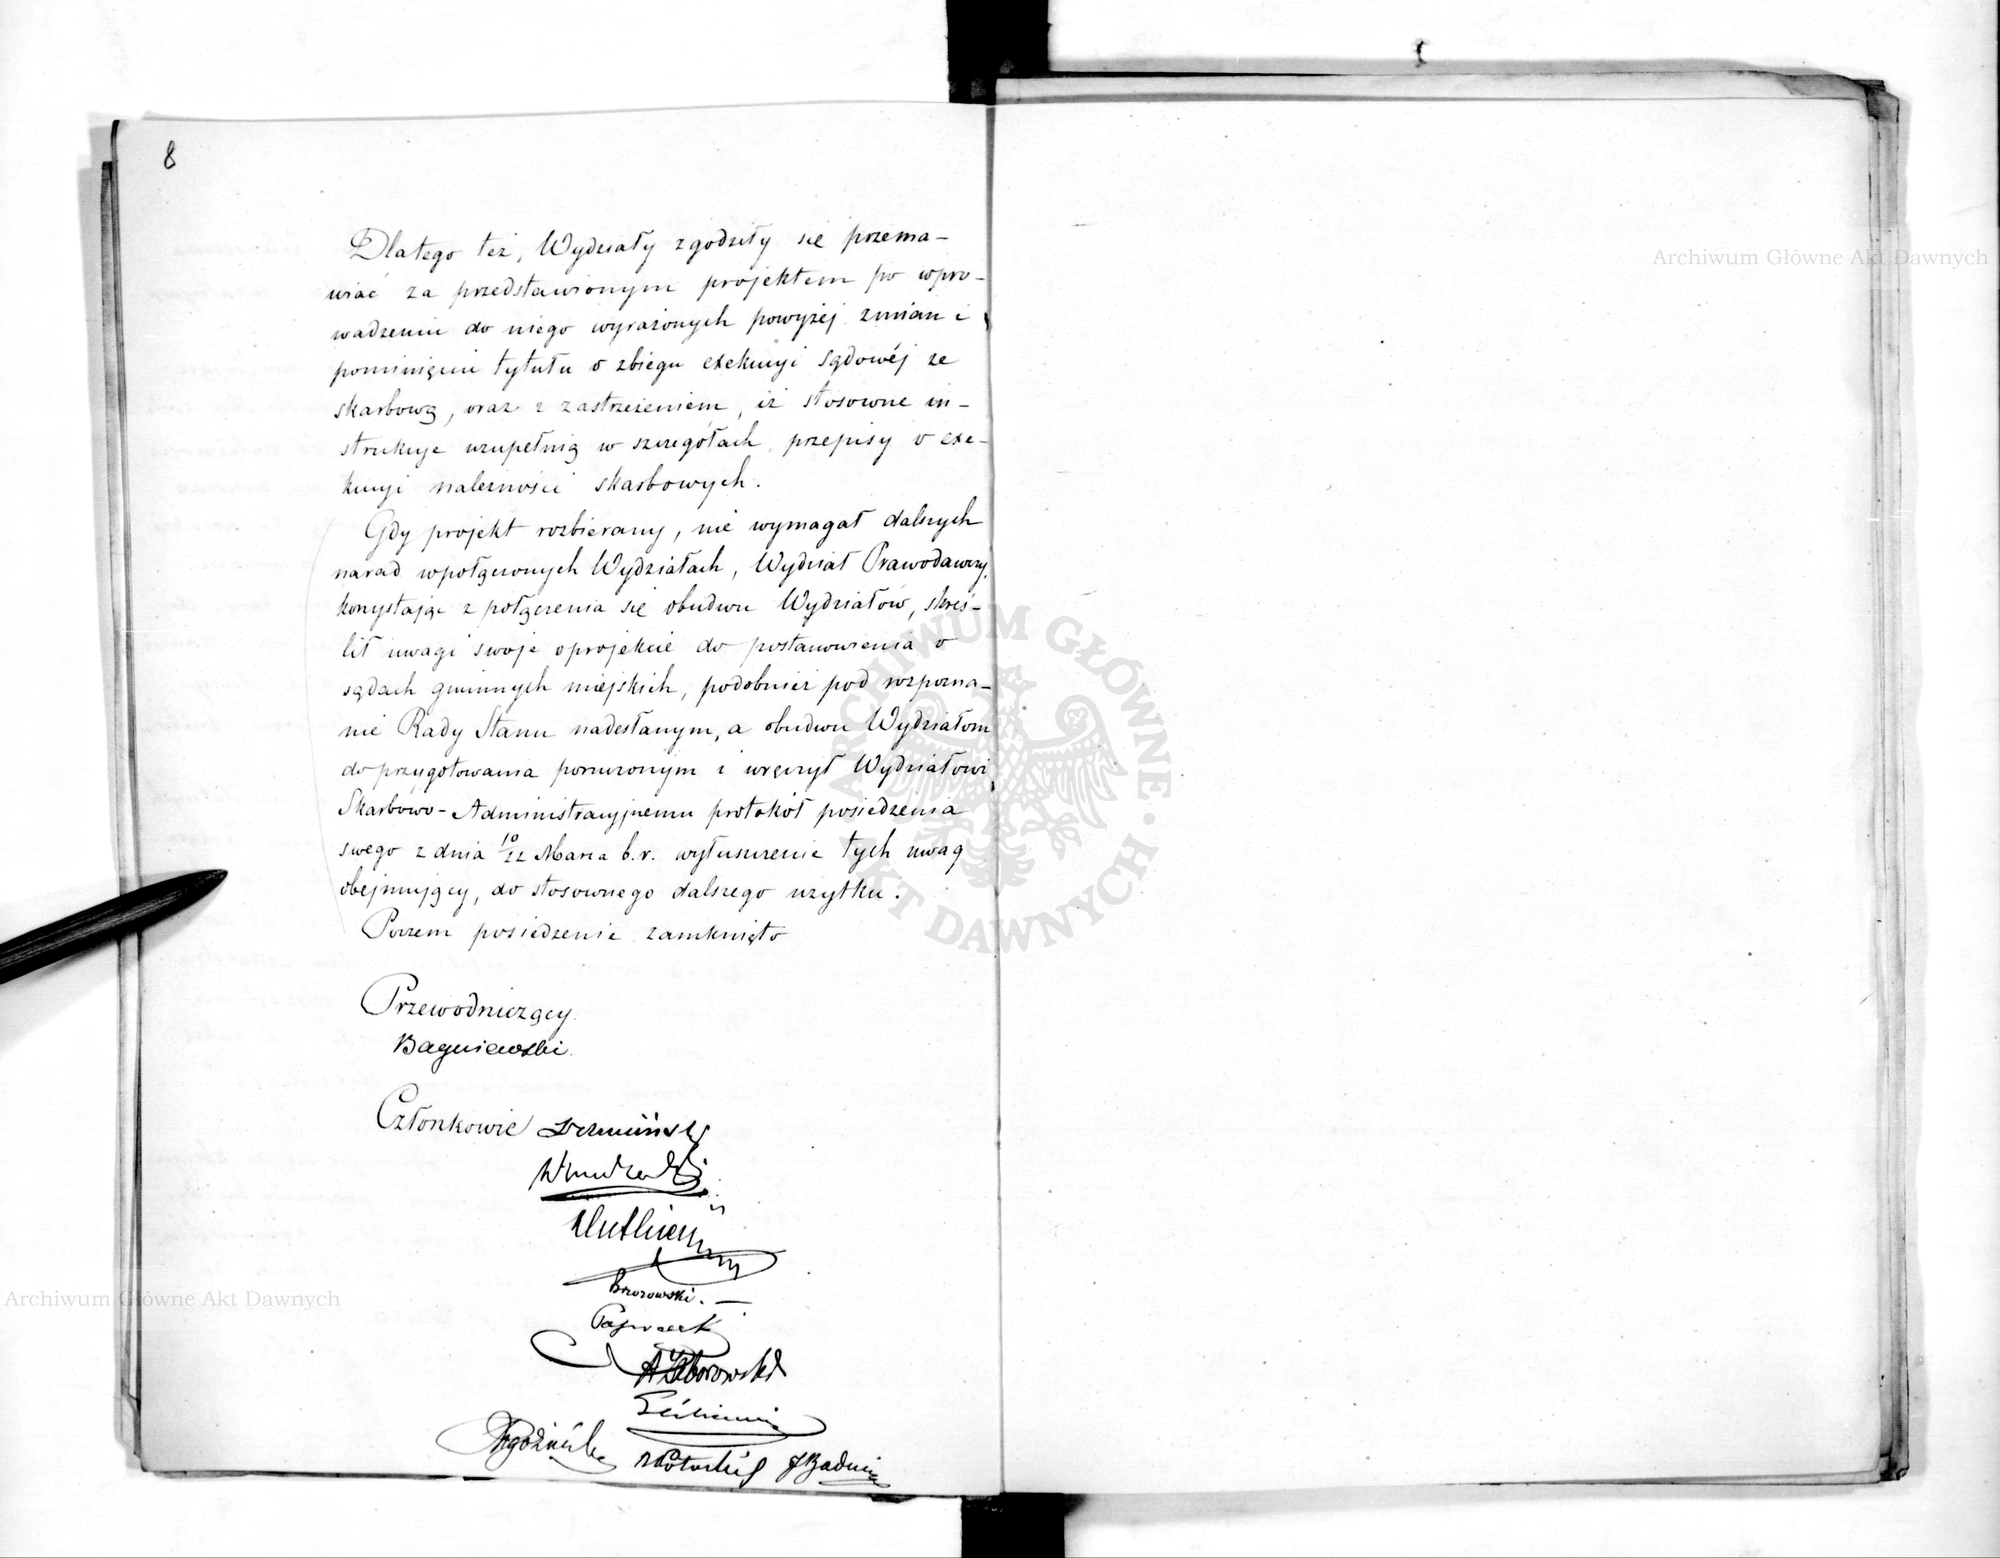 8
Dlatego też, Wydziały zgodziły się przema-
wiać za przedstawionym projektem po wpro-
wadzeniu do niego wyrażonych powyżéj zmian i
pominięciu tytułu o zbiegu exekucyi sądowéj ze
skarbową, oraz z zastrzeżeniem, iż stosowne in-
strukcye uzupełnią w szczegółach przepisy o exe-
kucyi należności skarbowych.
Gdy projekt rozbierany, nie wymagał dalszych
narad w połączonych Wydziałach, Wydział Prawodawczy,
korzystając z połączenia się obudwu Wydziałów, skreś-
lił uwagi swoje o projekcie do postanowienia o
sądach gminnych miejskich, podobnież pod rozpozna-
nie Rady Stanu nadesłanym, a obudwu Wydziałom
do przygotowania poruczonym i wręczył Wydziałowi
Skarbowo-Administracyjnemu protokół posiedzenia
swego z dnia 10/22 Marca b.r. wyłuszczenie tych uwag
obejmujący, do stosownego dalszego użytku.
Poczem posiedzenie zamknięto
Przewodniczący
Bagniewski.
Członkowie
Brzozowski.
A Zaborowski
Archiwum Główne Akt Dawnych
Archiwum Główne Akt Dawnych
ARCHIWUM GŁÓWNE AKT DAWNYCH